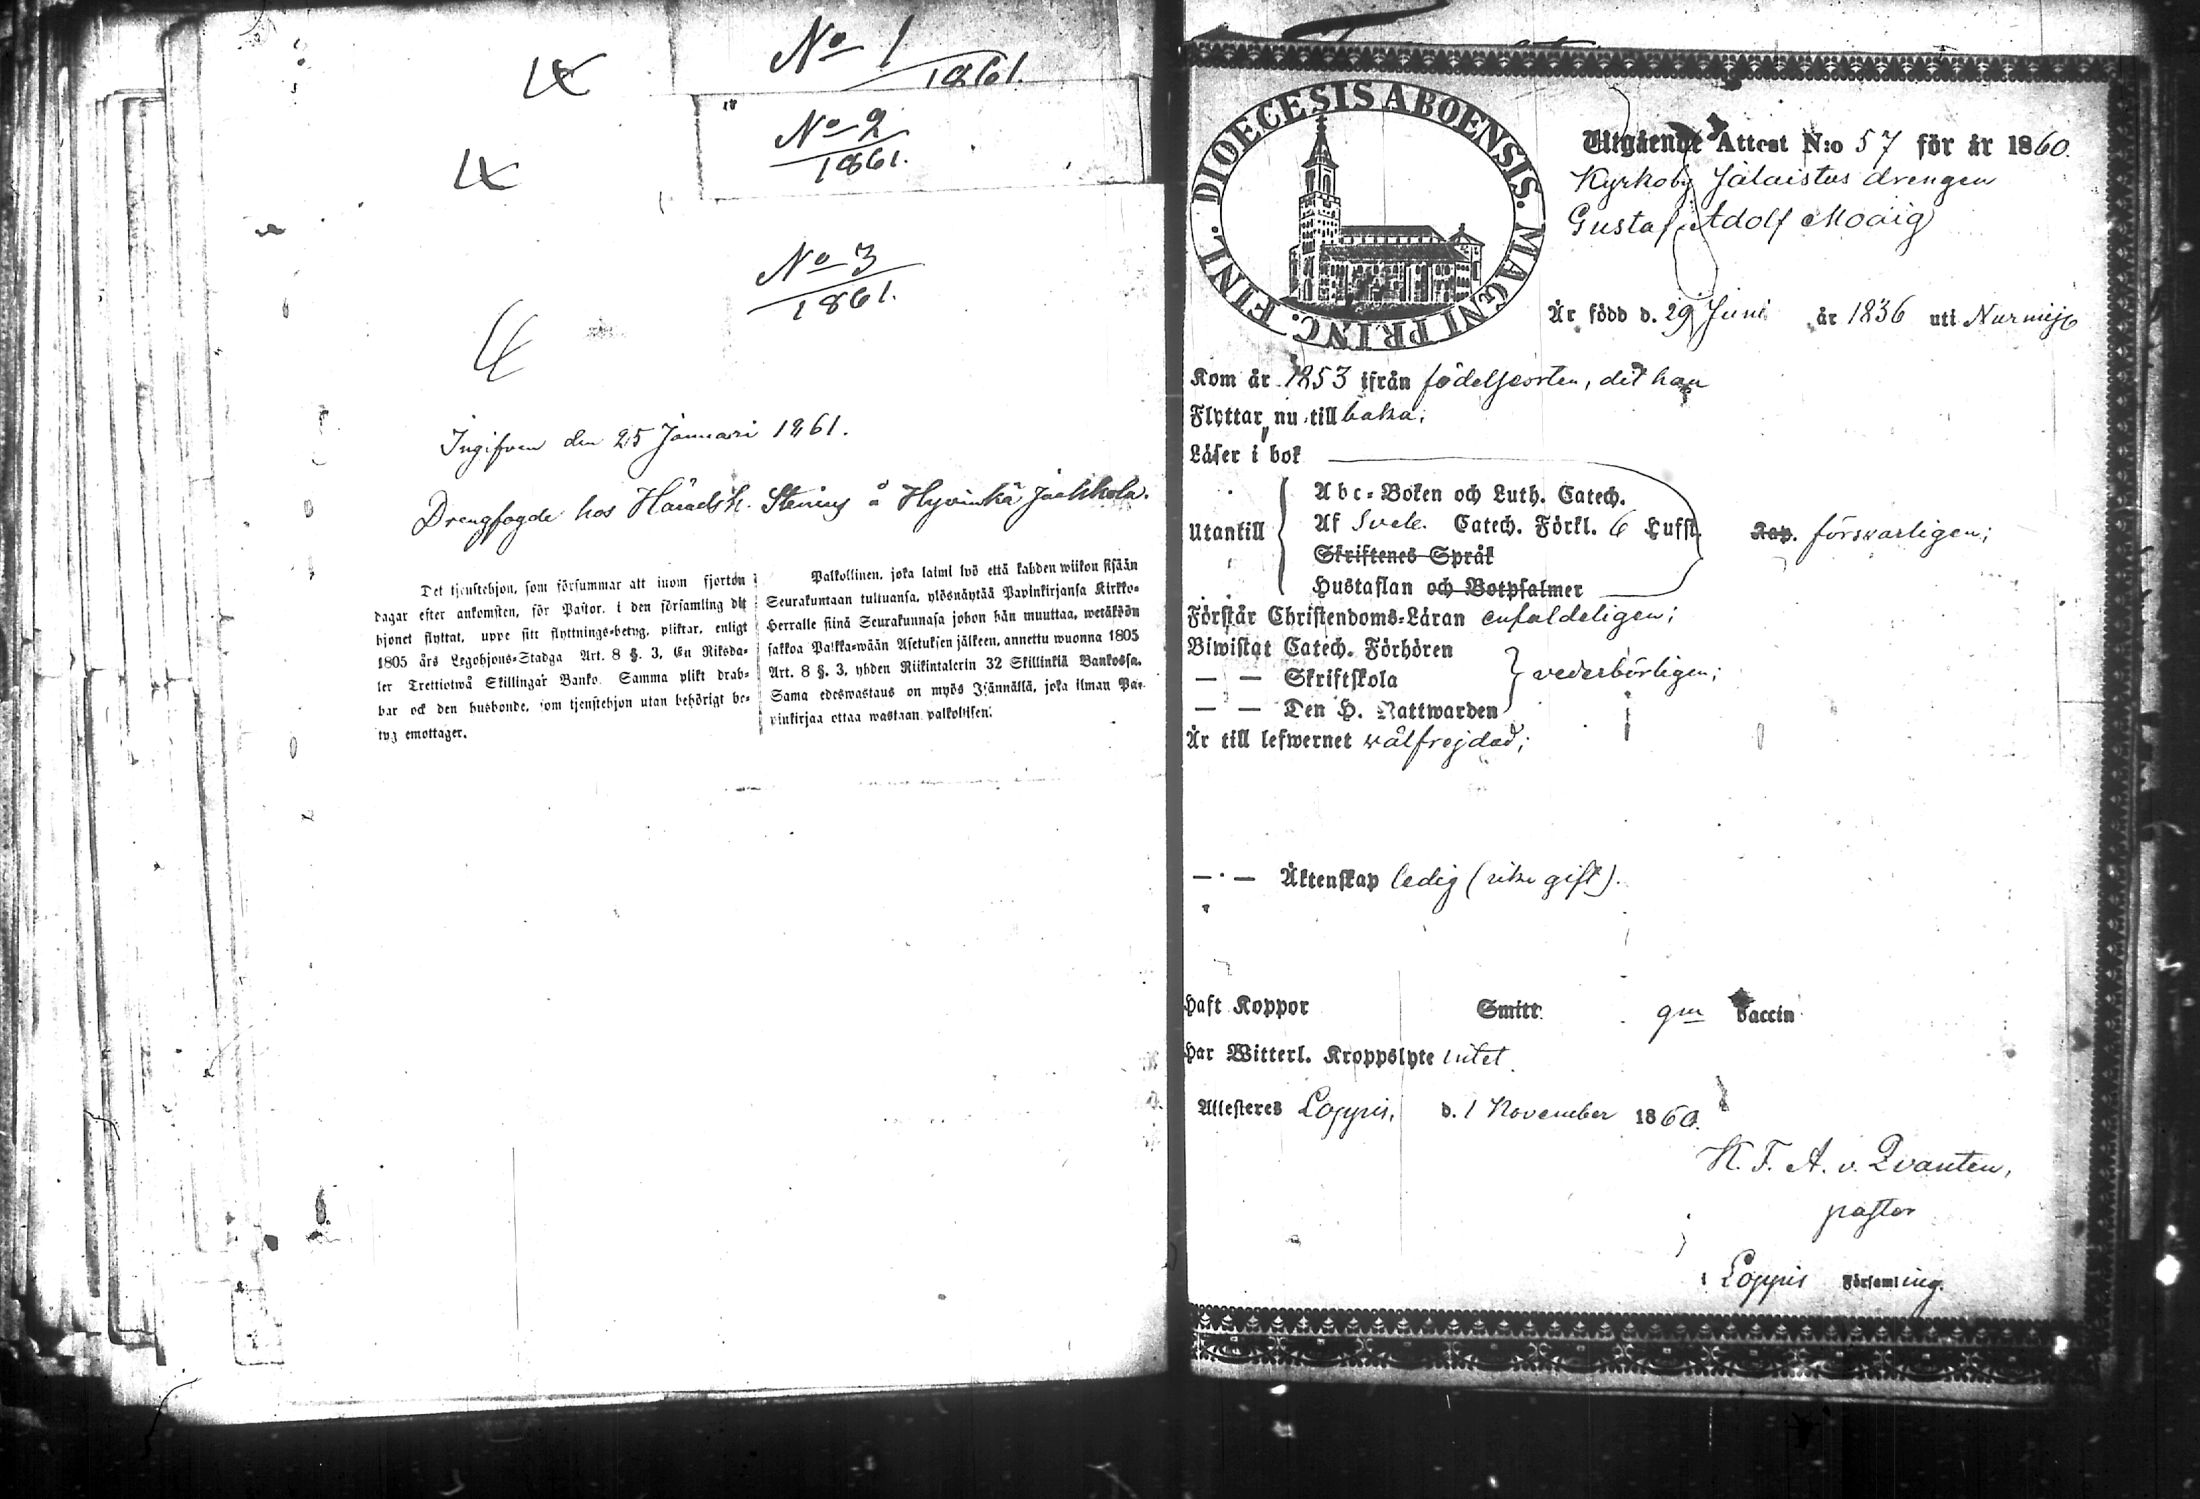 No 1
1861.
No 2
1861.
No 3
1861.
Ingifven den 25 Januari 1861.
Drengfogde hos Häradsh. Stenius å Hyvinkä Jackkola.
Det tjenstehjon, som försummar att inom fjorton
dagar efter ankomsten, för Pastor i den församling dit
hjonet flyttat, uppe sitt flyttnings-betyg, pliktar, enligt
1805 års Legohjons-Stadga Art. 8 §. 3, En Riksda-
ler Trettiotwå Skillingar Banko. Samma plikt drab-
bar ock den husbonde, som tjenstehjon utan behörigt be-
tyg emottager.
Palkollinen, joka laimi lyö että kahden wiikon sisään
Seurakuntaan tultuansa, ylösnäytää Papinkirjansa Kirkko-
Herralle siinä Seurakunnasa johon hän muuttaa, wetäköön
sakkoa Palkka-wään Asetuksen jälkeen, annettu wuonna 1805
Art. 8 §. 3, yhden Riikintalerin 32 Skillinkiä Bankossa.
Sama edeswastaus on myös Isännällä, joka ilman Pa-
pinkirjaa ottaa wastaan palkollisen.
DIOECESIS ABOENSIS. MAGNI PRINC. FINL.
Utgående Attest N:o 57 för år 1860.
Kyrkoby Jälaistus drengen
Gustaf Adolf Moaig
Är född d. 29 Juni år 1836 uti Nurmije
Kom år 1853 ifrån födelseorten, dit han
Flyttar nu till baka;
Läser i bok
Utantill
Abc-Boken och Luth. Catech.
Af Sveb. Catech. Förkl. 6 Hufst. Kap. försvarligen;
Skriftenes Språk
Hustaflan och Botpsalmer
Förstår Christendoms-Läran enfaldeligen;
Biwistat Catech. Förhören
— — Skriftskola vederbörligen;
— — Den H. Nattwarden
Är till lefwernet välfrejdad;
— · — Äktenskap ledig (icke gift).
Haft Koppor Smitt gm Vaccin
Har Witterl. Kroppslyte intet.
Attesteres Loppis, d. 1 November 1860.
K. F. A. v. Qvanten,
pastor
i Loppis Församling.